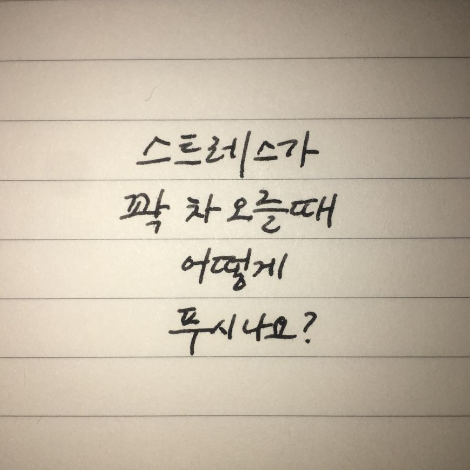 스트레스가
꽉 차 오를때
어떻게
푸시나요?